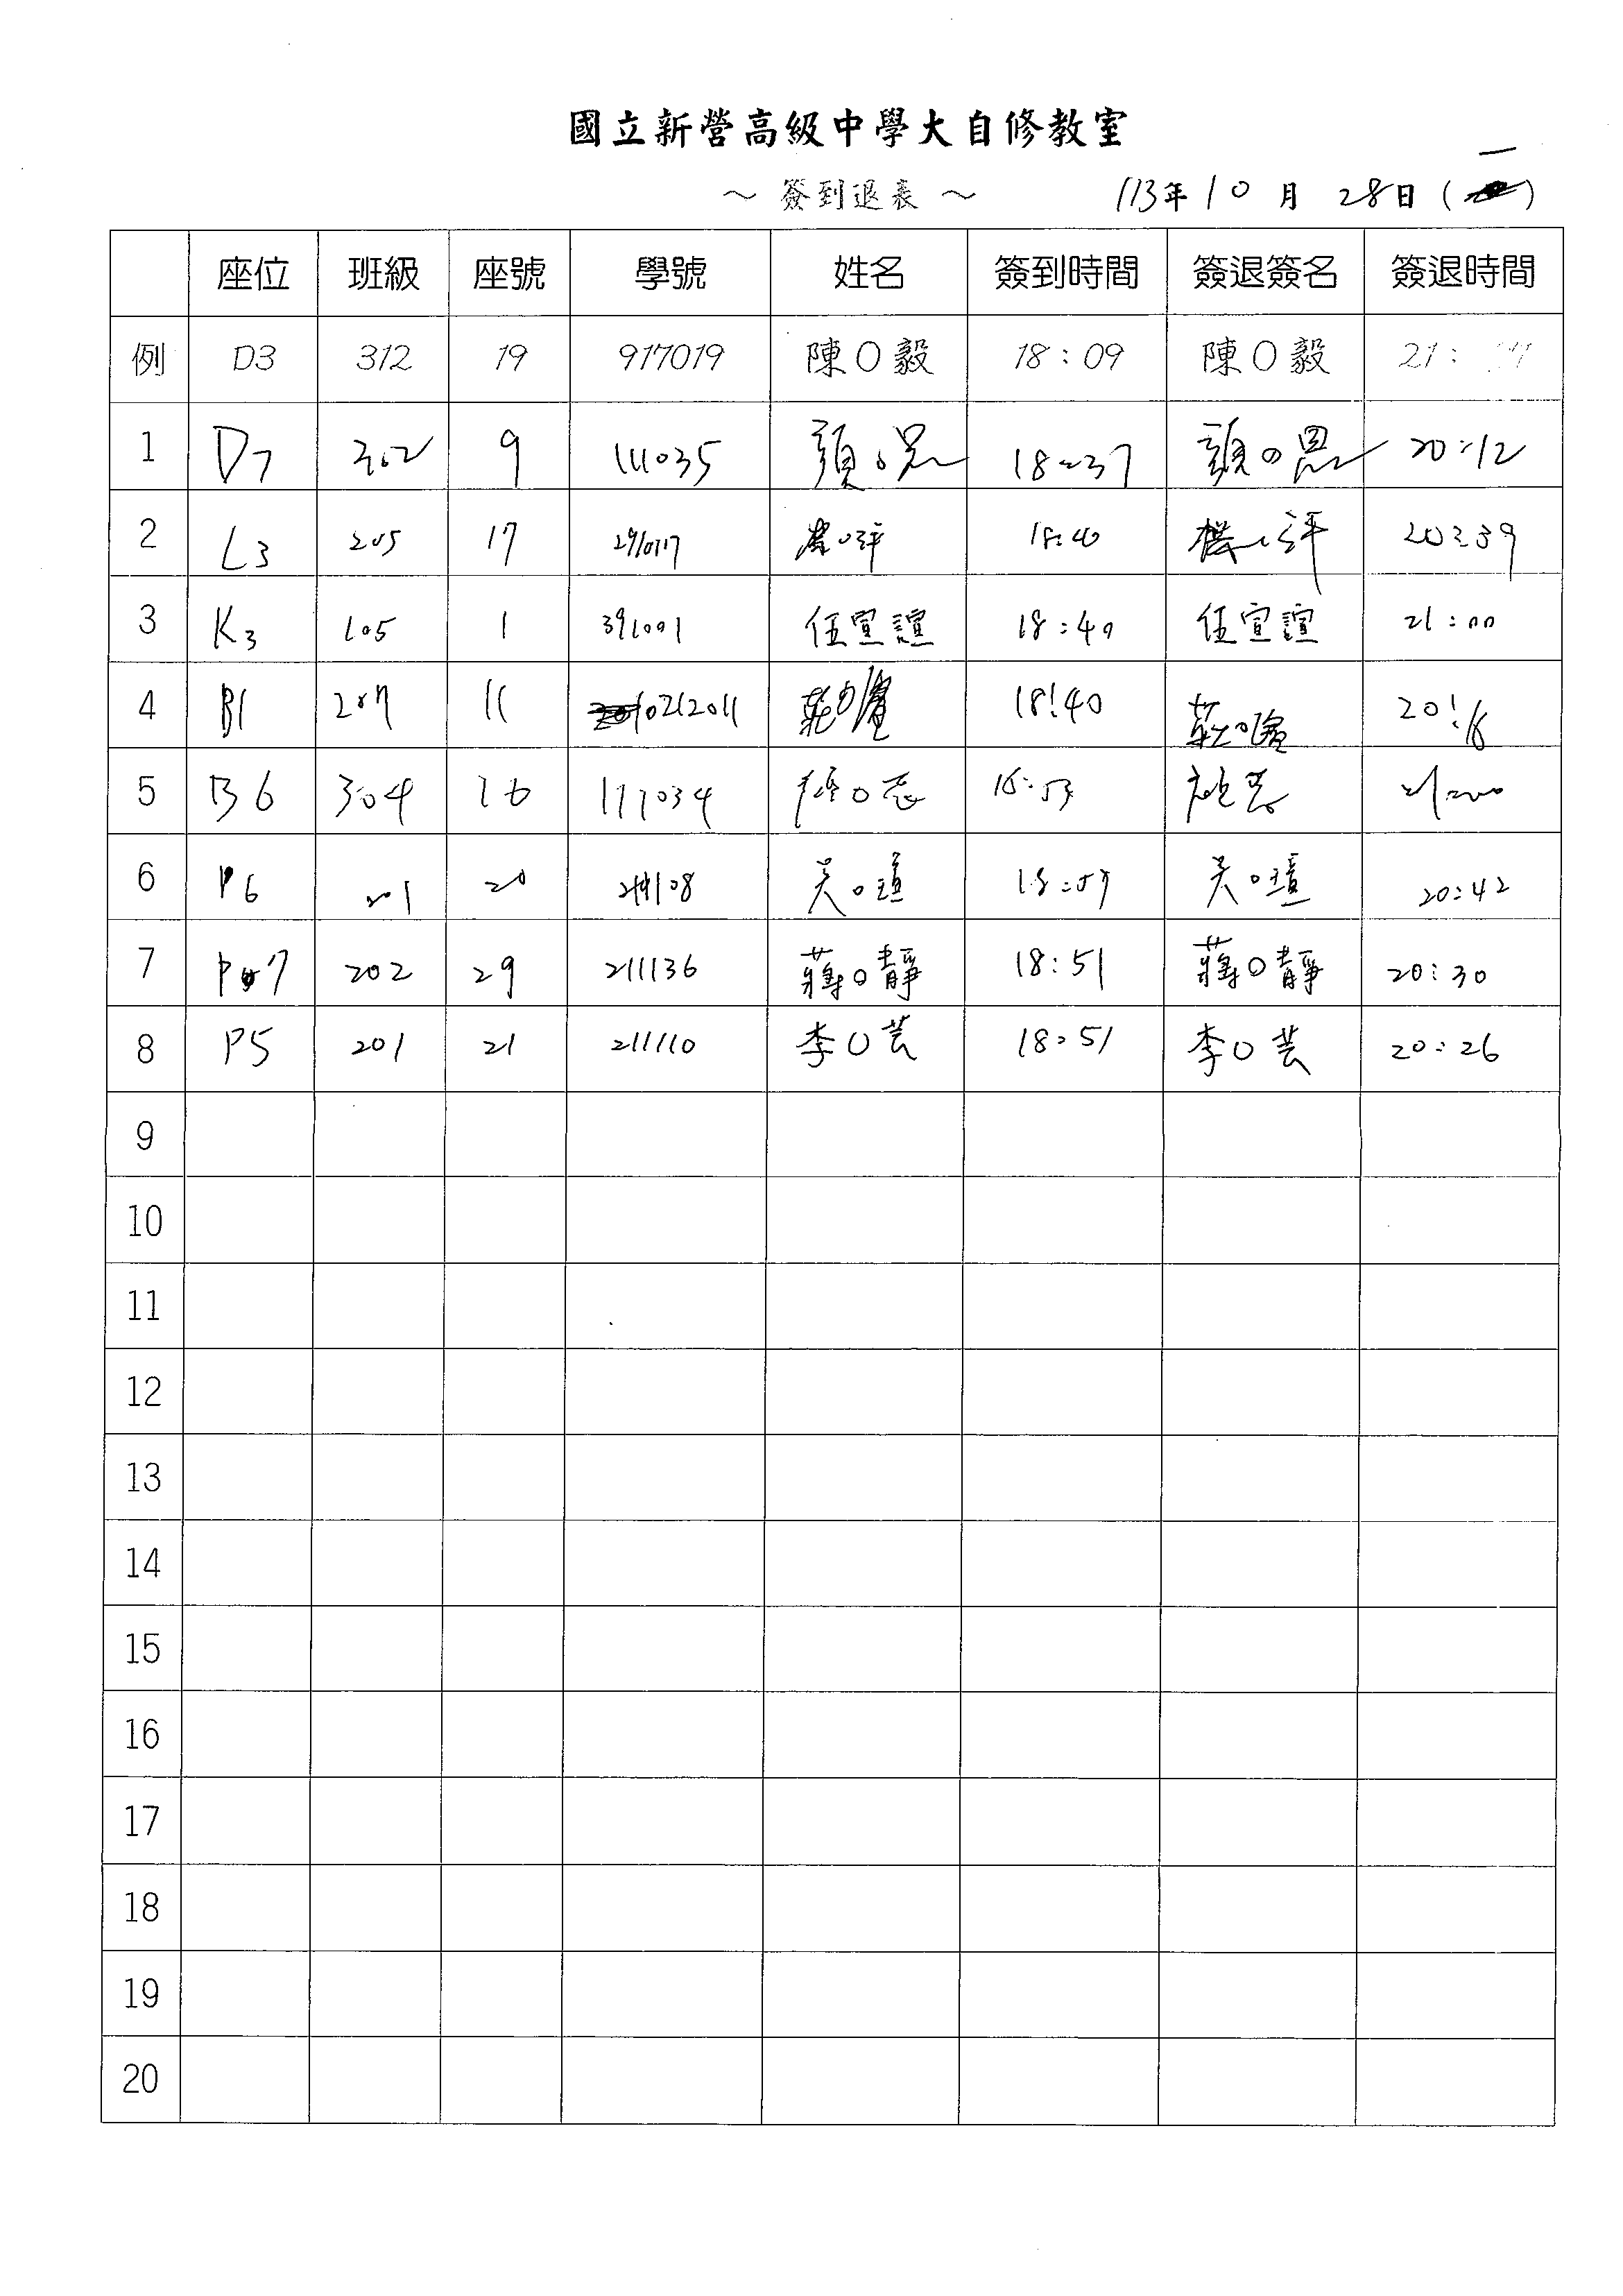 國立新營高級中學大自修教室
～ 簽到退表 ～ 113年10月28日(一)
座位 班級 座號 學號 姓名 簽到時間 簽退簽名 簽退時間
例 D3 312 19 917019 陳O毅 18:09 陳O毅 21:
1 D7 302 9 111035 O 18:37 O 20:12
2 L3 205 17 O評 18:40 評 20:39
3 K3 105 1 391001 任宣誼 18:40 任宣誼 21:00
4 B1 207 11 0212011 莊O 18:40 莊O 20:18
5 B6 304 16 111034 O 18:53 21:00
6 P6 201 20 吳O瑄 18:57 吳O瑄 20:42
7 P7 202 29 211136 蔣O靜 18:51 蔣O靜 20:30
8 P5 201 21 211110 李O芸 18:51 李O芸 20:26
9
10
11
12
13
14
15
16
17
18
19
20